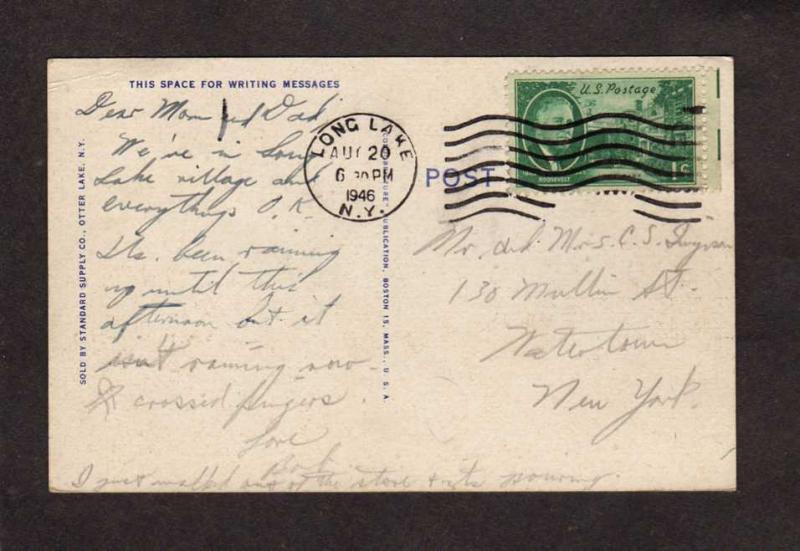 THIS SPACE FOR WRITING MESSAGES
Dear Mom and Dad
We're in Long
Lake village and
everythings O.K.
Its been raining
up until this
afternoon but it
isn't raining now-
crossed fingers.
Love
Bob
I just walked out of the store & its pouring.
SOLD BY STANDARD SUPPLY CO., OTTER LAKE, N.Y.
PUBLICATION, BOSTON 15, MASS., U. S. A.
LONG LAKE
AUG 20
6 30 PM
1946
N.Y.
POST
U.S. Postage
ROOSEVELT
1¢
Mr. and Mrs. C. S.
130 Mullin St.
Watertown
New York.